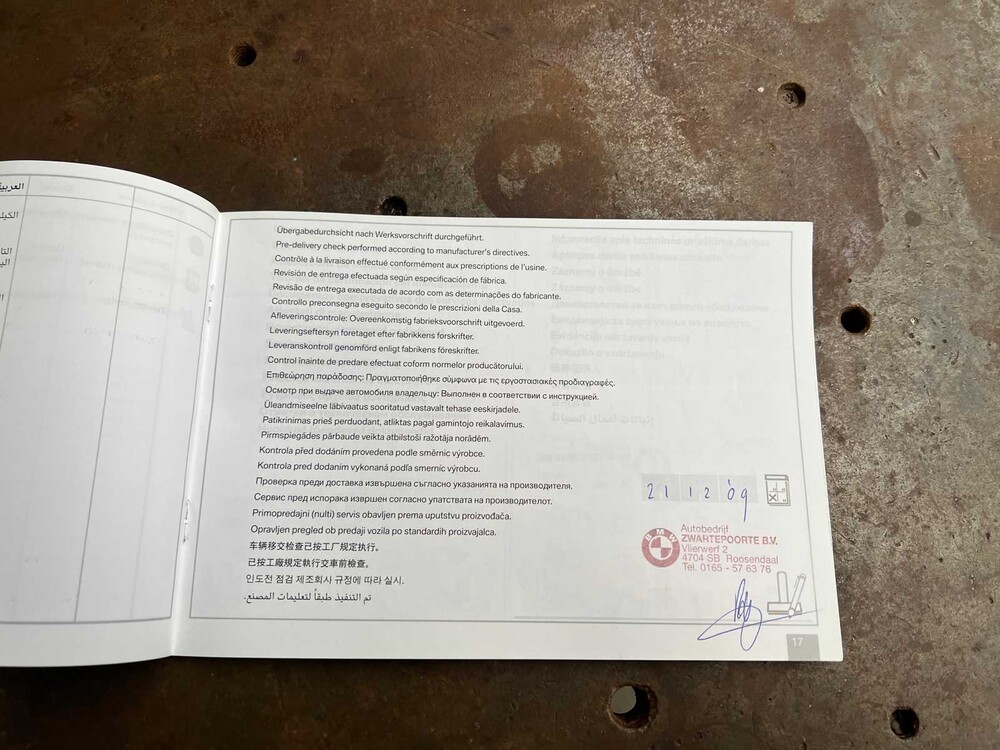 العربية
Übergabedurchsicht nach Werksvorschrift durchgeführt.
Pre-delivery check performed according to manufacturer's directives.
Contrôle à la livraison effectué conformément aux prescriptions de l'usine.
Revisión de entrega efectuada según especificación de fábrica.
Revisão de entrega executada de acordo com as determinações do fabricante.
Controllo preconsegna eseguito secondo le prescrizioni della Casa.
Afleveringscontrole: Overeenkomstig fabrieksvoorschrift uitgevoerd.
Leveringseftersyn foretaget efter fabrikkens forskrifter.
Leveranskontroll genomförd enligt fabrikens föreskrifter.
Control înainte de predare efectuat coform normelor producătorului.
Επιθεώρηση παράδοσης: Πραγματοποιήθηκε σύμφωνα με τις εργοστασιακές προδιαγραφές.
Осмотр при выдаче автомобиля владельцу: Выполнен в соответствии с инструкцией.
Üleandmiseelne läbivaatus sooritatud vastavalt tehase eeskirjadele.
Patikrinimas prieš perduodant, atliktas pagal gamintojo reikalavimus.
Pirmspiegādes pārbaude veikta atbilstoši ražotāja norādēm.
Kontrola před dodáním provedena podle směrnic výrobce.
Kontrola pred dodaním vykonaná podľa smerníc výrobcu.
Проверка преди доставка извършена съгласно указанията на производителя.
Сервис пред испорака извршен согласно упатствата на производителот.
Primopredajni (nulti) servis obavljen prema uputstvu proizvođača.
Opravljen pregled ob predaji vozila po standardih proizvajalca.
车辆移交检查已按工厂规定执行。
已按工廠規定執行交車前檢查。
인도전 점검 제조회사 규정에 따라 실시.
تم التنفيذ طبقاً لتعليمات المصنع.
21 12 09
BMW
Autobedrijf
ZWARTEPOORTE B.V.
Vlierwerf 2
4704 SB Roosendaal
Tel. 0165 - 57 63 76
17